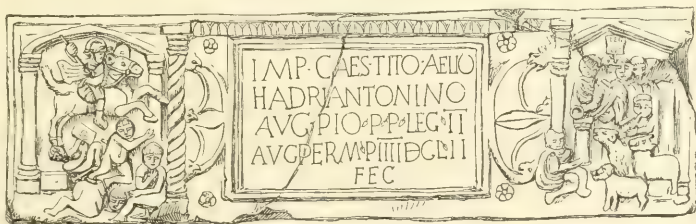 IMP·CAES·TITO·AELIO
HADRI·ANTONINO
AVG·PIO·P·P·LEG·II
AVG·PER·M·P·IIIIDCLII
FEC